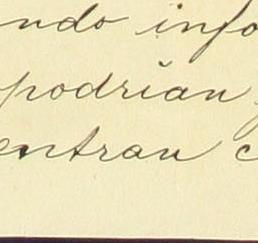 ndo info
podrian
entran c